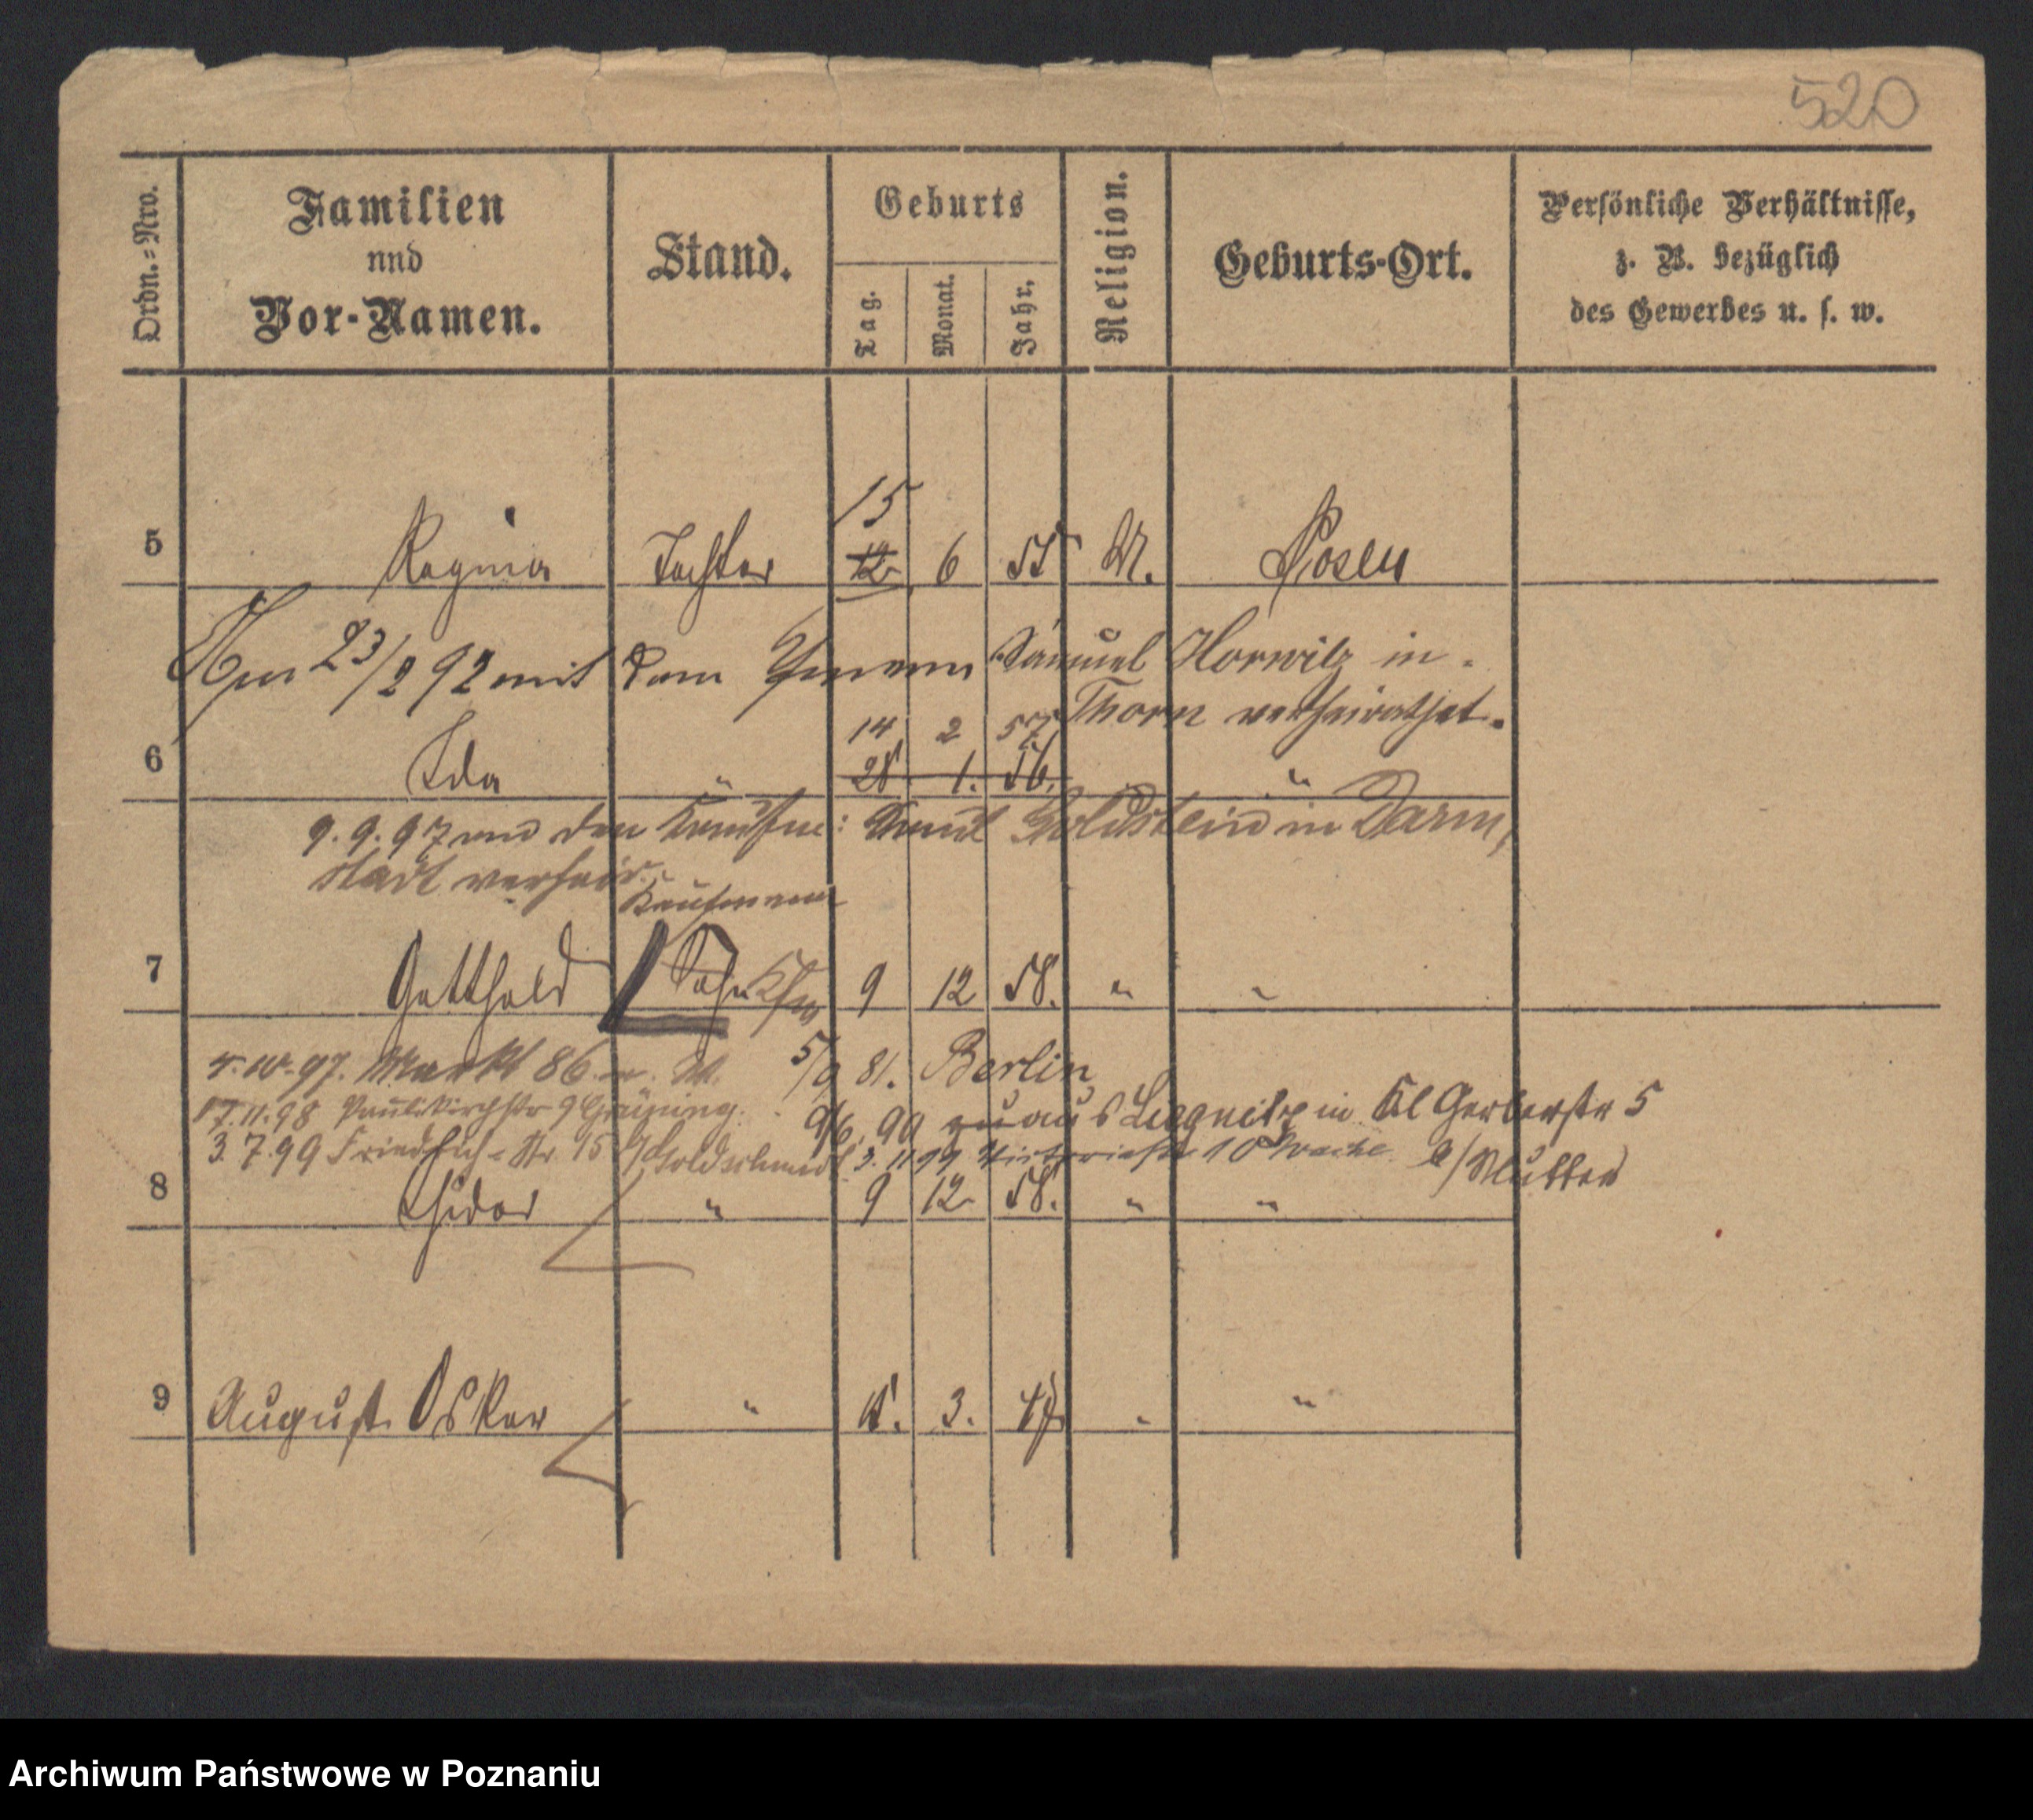 520
Ordn.=Nro.
Familien
und
Vor-Namen.
Stand.
Geburts
Tag.
Monat.
Jahr.
Religion.
Geburts-Ort.
Persönliche Verhältnisse,
z. B. bezüglich
des Gewerbes u. s. w.
15
5 Regina Tochter 12 6 55 M. Posen
Am 23/2 92 mit dem Samuel Horwitz in
Thorn verheirathet.
14 2 57
6 Ida " 28 1. 56. "
9. 9. 97 den Goldstein in Darm,
stadt verheir.
Kaufmann
7 Gotthold Sohn Kfm 9 12 58. " "
97. Markt 86 5/9 81. Berlin
17.11.98 Paulikirchstr 9 Grüning. 9/6. 90 aus Liegnitz in Kl Gerberstr 5
3.7.99 Friedrich-Str. 15 b/Goldschmidt. 3. 11 99 10 b/Mutter
8 Isidor " 9 12 58. " "
9 August Oskar " 3. " "
Archiwum Państwowe w Poznaniu